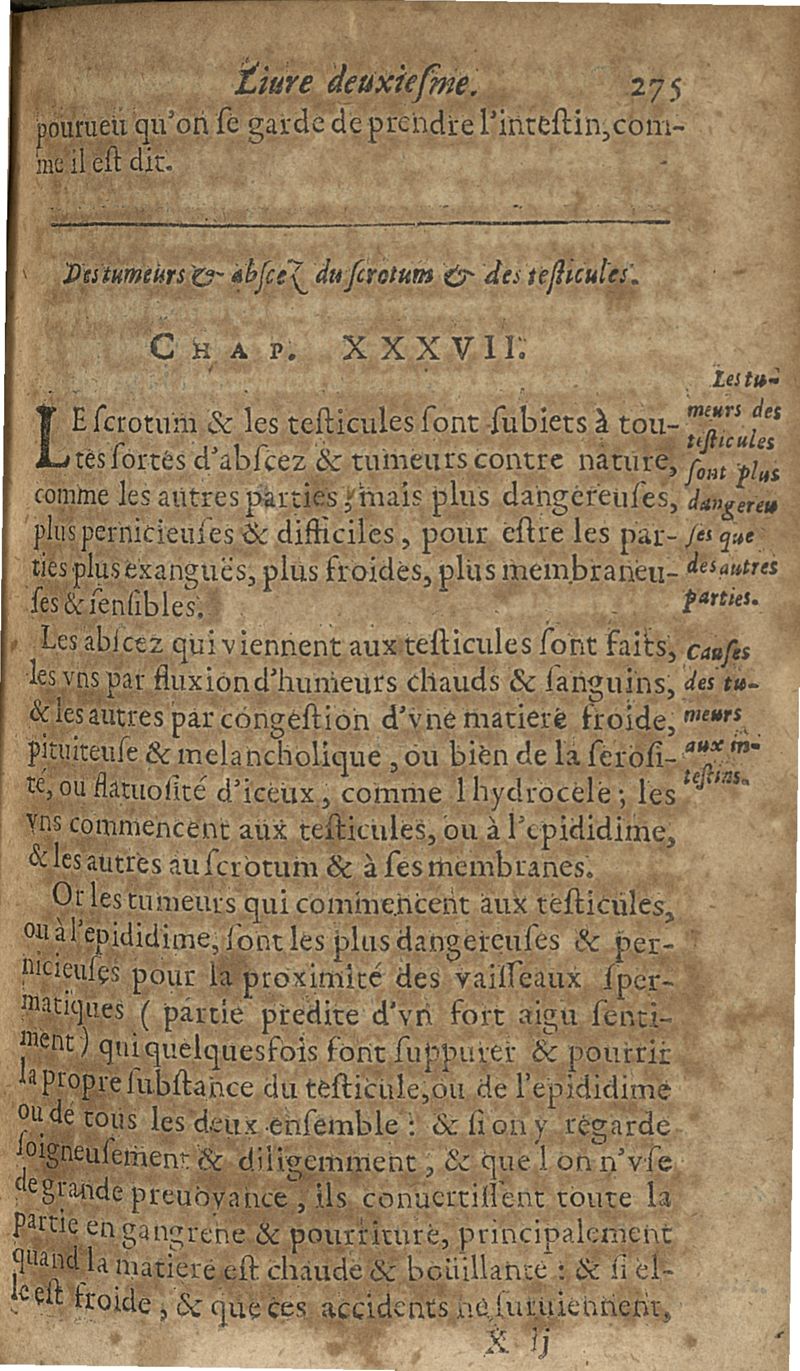 Liure deuxieſme. 275
pourueu qu'on ſe garde de prendre l'inteſtin, com-
me il eſt dit.
Des tumeurs & abſcez du ſcrotum & des teſticules.
CHAP. XXXVII.
LE ſcrotum & les teſticules ſont ſubiets à tou-
tes ſortes d'abſcez & tumeurs contre nature,
comme les autres parties; mais plus dangereuſes,
plus pernicieuſes & difficiles, pour eſtre les par-
ties plus exanguës, plus froides, plus membraneu-
ſes & ſenſibles.
Les tu-
meurs des
teſticules
ſont plus
dangereu
ſes que
des autres
parties.
Les abſcez qui viennent aux teſticules ſont faits,
les vns par fluxion d'humeurs chauds & ſanguins,
& les autres par congeſtion d'vne matiere froide,
pituiteuſe & melancholique, ou bien de la ſeroſi-
té, ou flatuoſité d'iceux, comme l hydrocele; les
vns commencent aux teſticules, ou à l'epididime,
& les autres au ſcrotum & à ſes membranes.
Cauſes
des tu-
meurs
aux in-
teſtins.
Or les tumeurs qui commencent aux teſticules,
ou à l'epididime, ſont les plus dangereuſes & per-
nicieuſes pour la proximité des vaiſſeaux ſper-
matiques ( partie predite d'vn fort aigu ſenti-
ment) qui quelquesfois font ſuppurer & pourrir
la propre ſubſtance du teſticule, ou de l'epididime
ou de tous les deux enſemble : & ſi on y regarde
ſoigneuſement & diligemment, & que l on n'vſe
de grande preuoyance, ils conuertiſſent toute la
partie en gangrene & pourriture, principalement
quand la matiere eſt chaude & boüillante : & ſi el-
le eſt froide, & que ces accidents ne ſuruiennent,
X ij